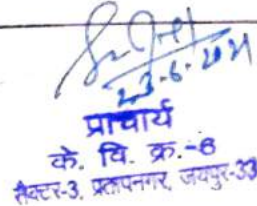 23.6.2021
प्राचार्य
के. वि. क्र.-8
सैक्टर-3, प्रतापनगर, जयपुर-33